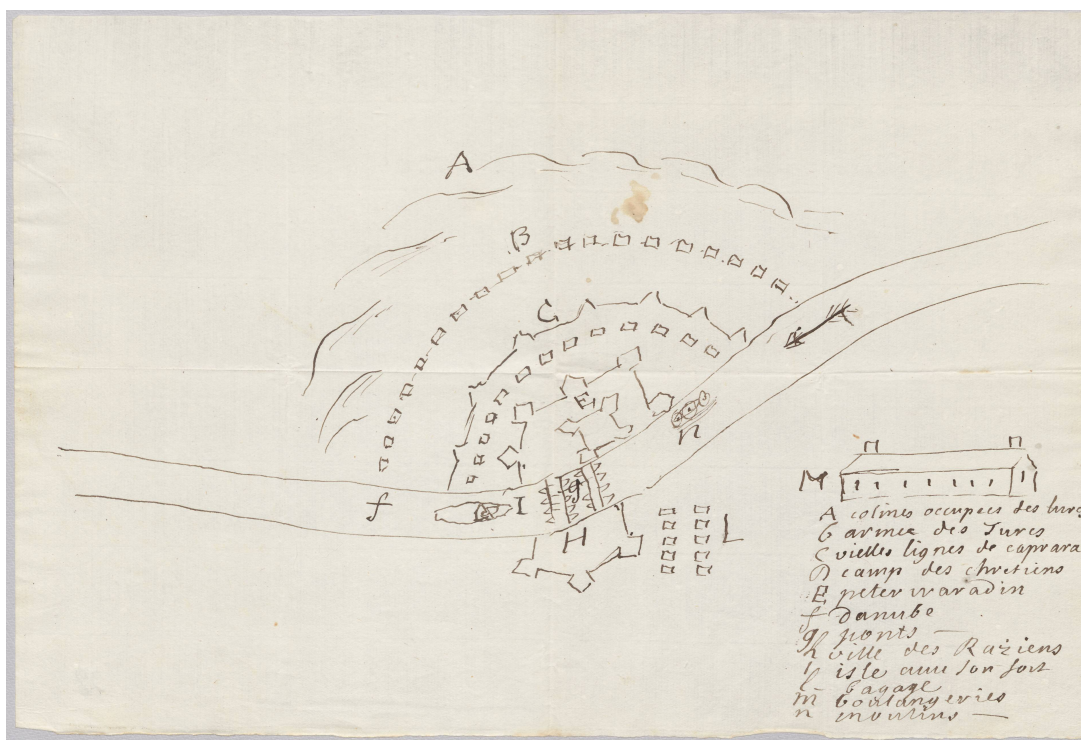 A
B
C
E
f
I
g
H
n
L
M
A colines occupees des turcs
b armee des Turcs
C vielles lignes de caprara
D camp des chretiens
E peter waradin
f danube
g ponts
h ville des Raziens
i isle avec son fort
l bagage
m boulangeries
n moulins